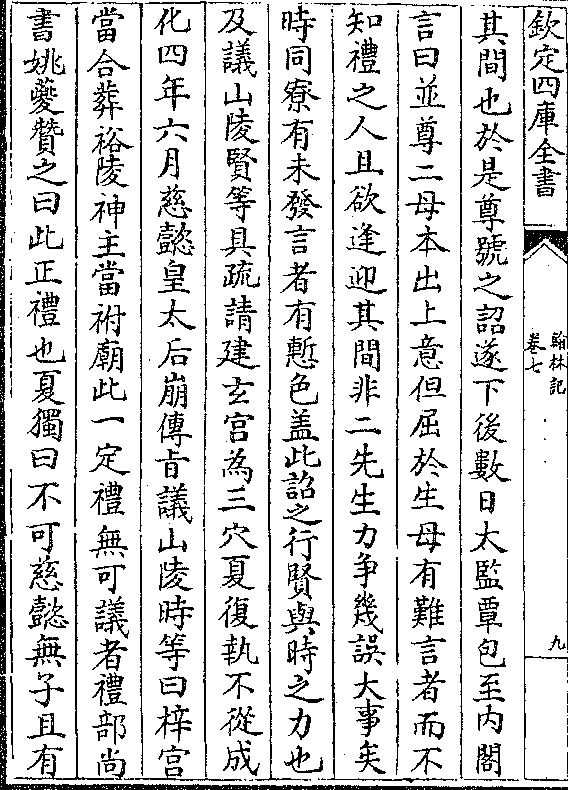 欽定四庫全書
翰林記
卷七
九
其間也於是尊號之詔遂下後數日太監覃包至内閣
言曰並尊二母本出上意但屈於生母有難言者而不
知禮之人且欲逢迎其間非二先生力爭幾誤大事矣
時同寮有未發言者有慙色盖此詔之行賢與時之力也
及議山陵賢等具疏請建玄宫為三穴夏復執不從成
化四年六月慈懿皇太后崩傳旨議山陵時等曰梓宫
當合葬裕陵神主當祔廟此一定禮無可議者禮部尚
書姚夔贊之曰此正禮也夏獨曰不可慈懿無子且有